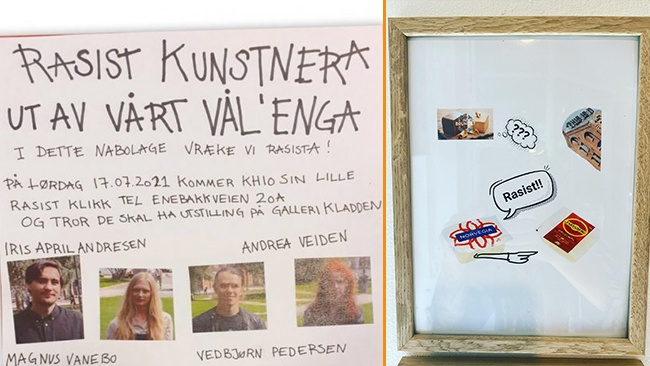 RASIST KUNSTNERA
UT AV VÅRT VÅL'ENGA
I DETTE NABOLAGE VRÆKE VI RASISTA!
PÅ LØRDAG 17.07.2021 KOMMER KHIO SIN LILLE
RASIST KLIKK TEL ENEBAKKVEIEN 20A
OG TROR DE SKAL HA UTSTILLING PÅ GALLERI KLADDEN
IRIS APRIL ANDRESEN
ANDREA VEIDEN
MAGNUS VANEBO
VEDBJØRN PEDERSEN
???
Rasist!!
NORVEGIA